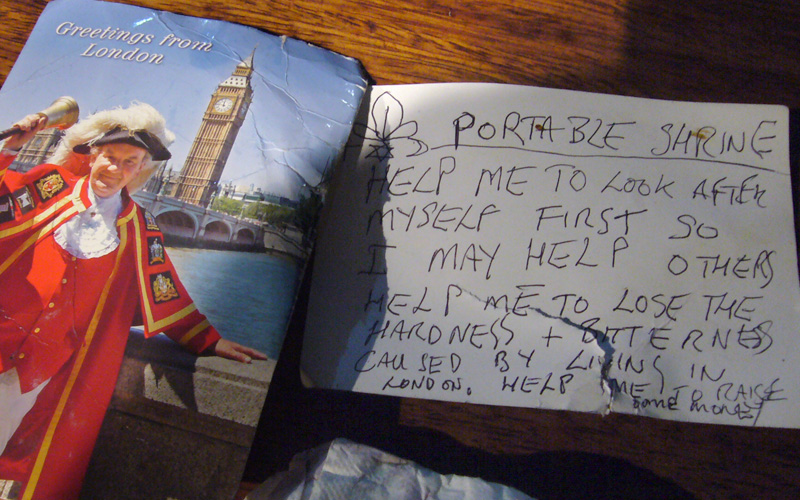 Greetings from
London
PORTABLE SHRINE
HELP ME TO LOOK AFTER
MYSELF FIRST SO
I MAY HELP OTHERS
HELP ME TO LOSE THE
HARDNESS + BITTERNESS
CAUSED BY LIVING IN
LONDON. HELP ME TO RAISE
some money